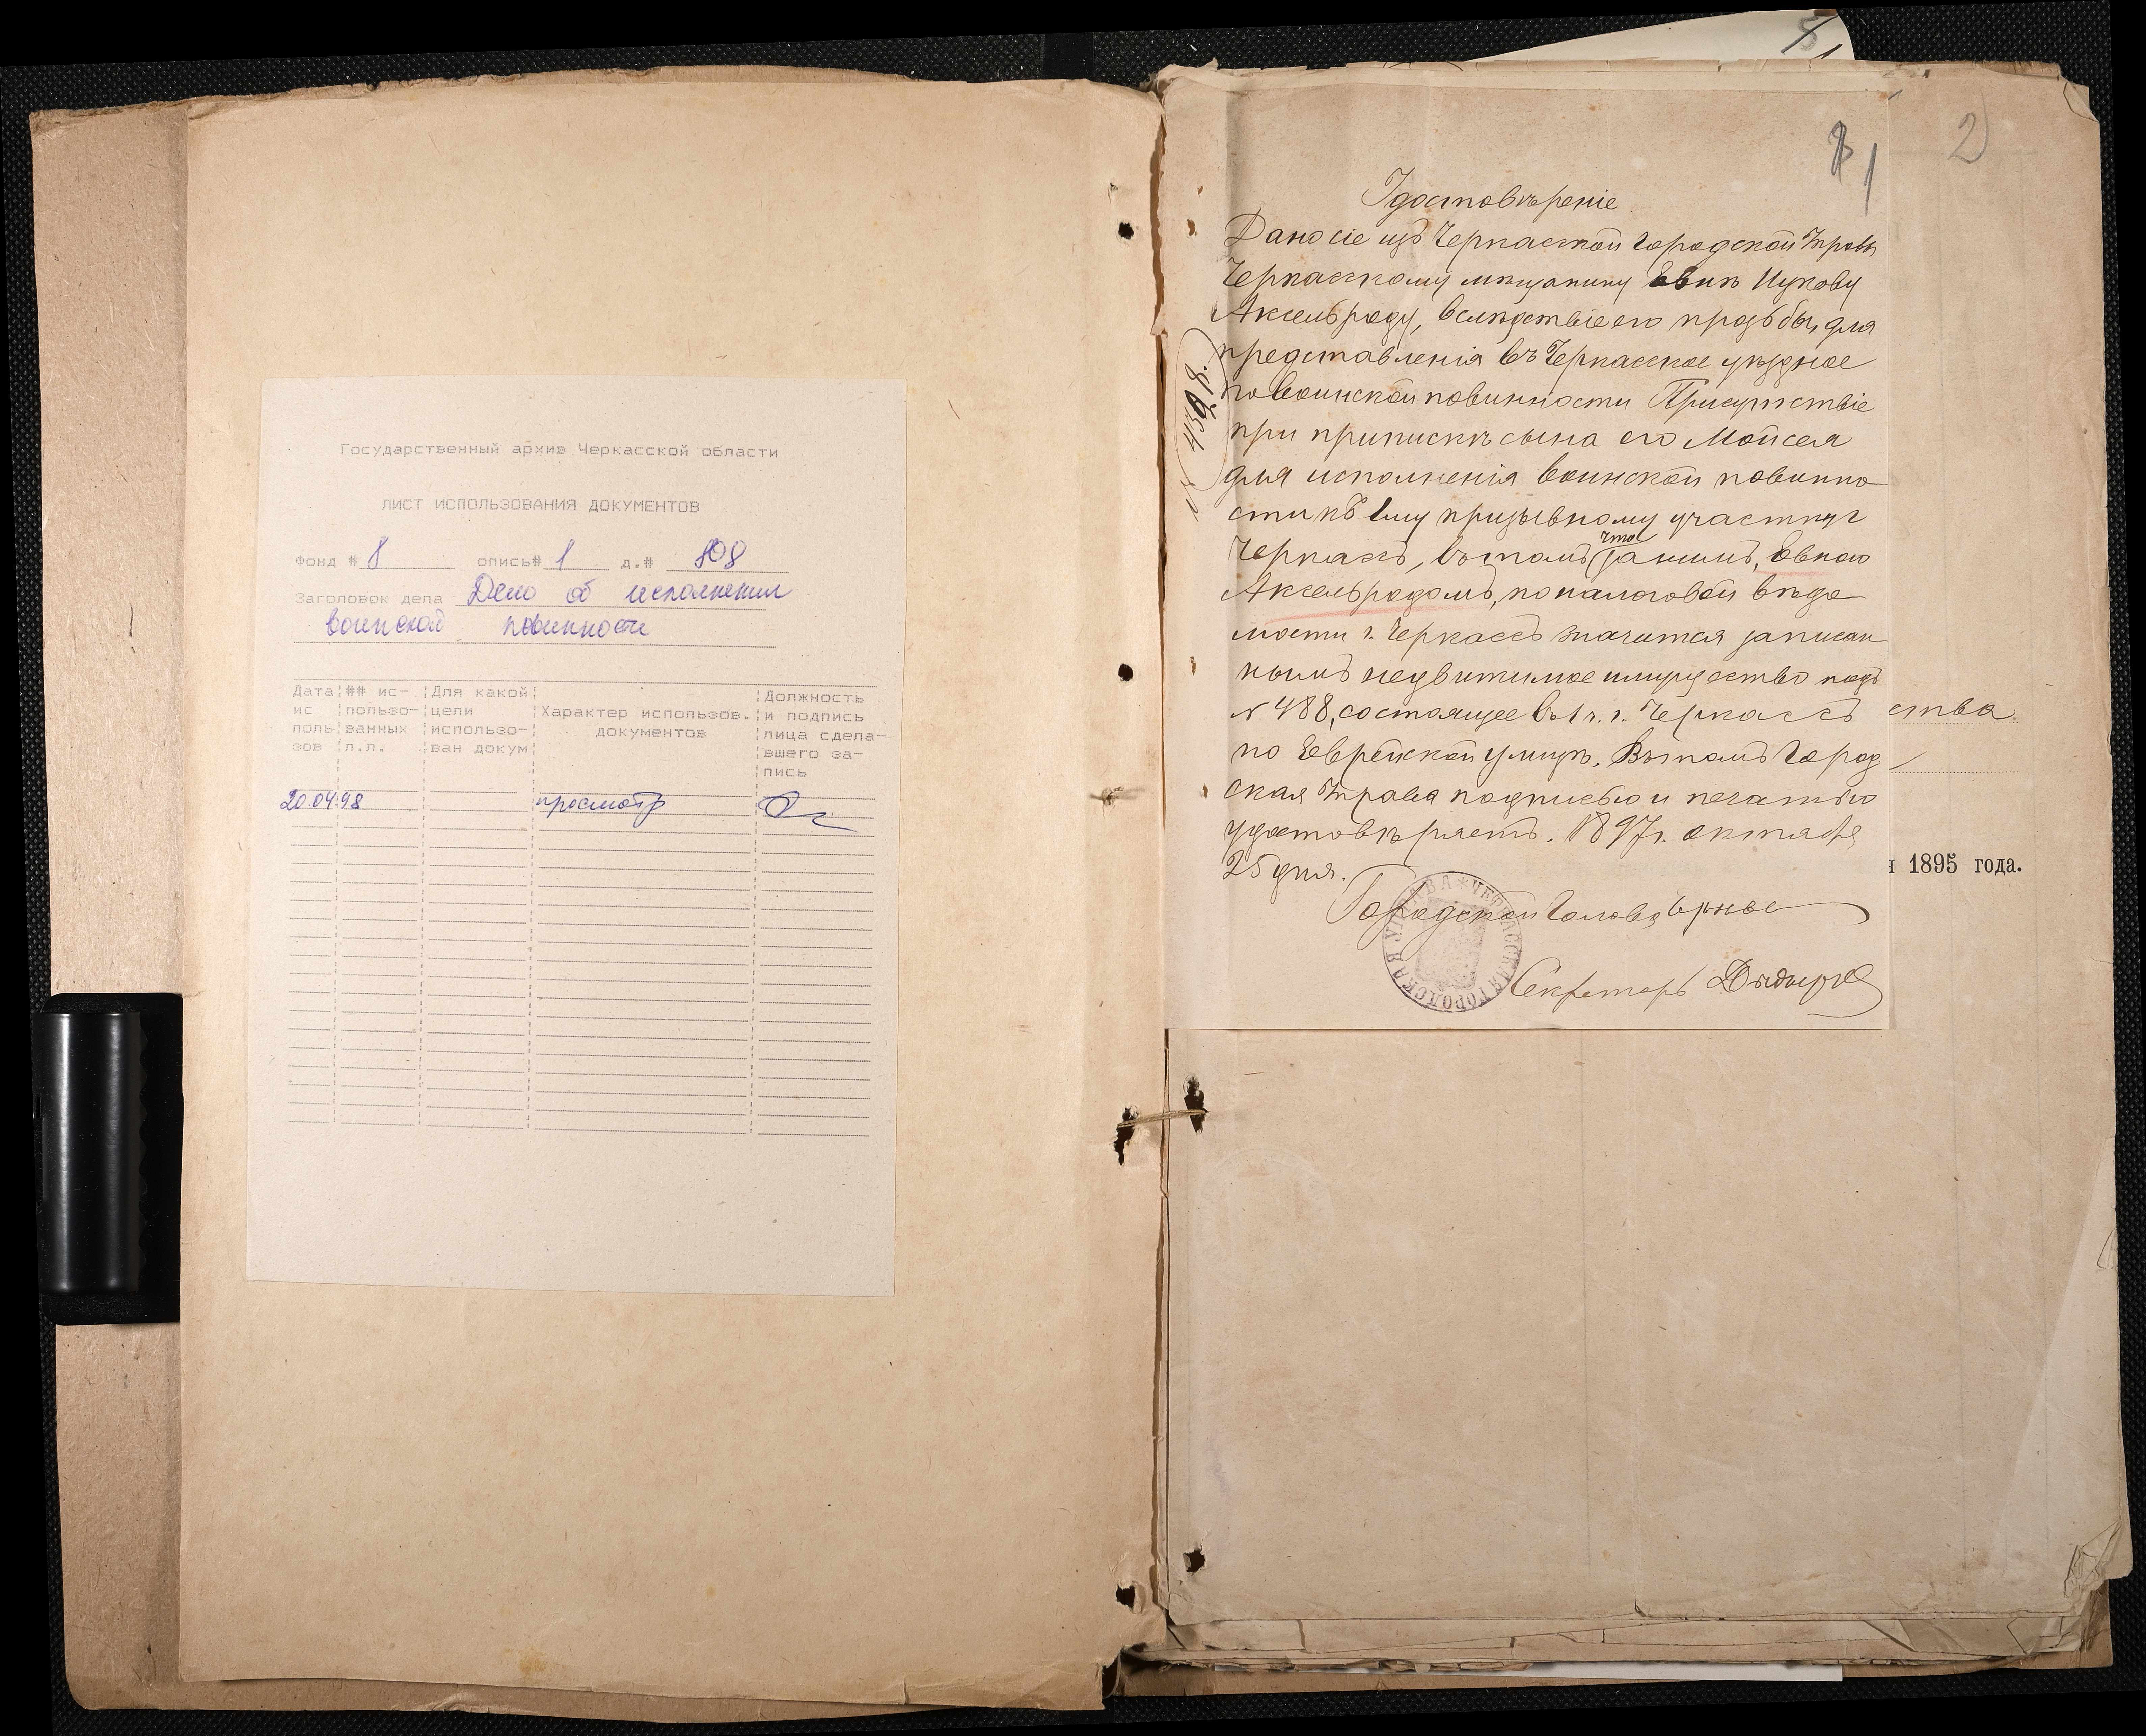 Государственный архив Черкасской области
ЛИСТ ИСПОЛЬЗОВАНИЯ ДОКУМЕНТОВ
Фонд # 8 опись# 1 д.# 808
Заголовок дела Дело об исполнении
воинской повинности
Дата ис поль зов
## ис- пользо- ванных л.л.
Для какой цели использо- ван докум
Характер использов. документов
Должность и подпись лица сдела- вшего за- пись
20.04.98 просмотр
5
1
2
Удостовѣреніе
Дано сіе изъ Черкасской Городской Управы
Черкасскому мѣщанину Ицкову
Аксельроду, вслѣдствіе его прозьбы, для
представленія въ Черкасское уѣздное
по воинской повинности Присутствіе
при припискѣ сына его Мойсея
для исполненія воинской повинно
сти къ 1му призывному участку г
Черкасъ, въ томъ что за нимъ, Евною
Аксельродомъ, по налоговой вѣдо
мости г. Черкассъ значится записан
нымъ недвижимое имущество подъ
№ 488, состоящее въ 1 ч. г. Черкассъ
по Еврейской улицѣ. Въ томъ Город
ская Управа подписью и печатью
удостовѣряетъ. 1897 г. октября
25 дня.
Городской Голова
Секретарь
ЧЕРКАССКАЯ ГОРОДСКАЯ УПРАВА
ства
1895 года.